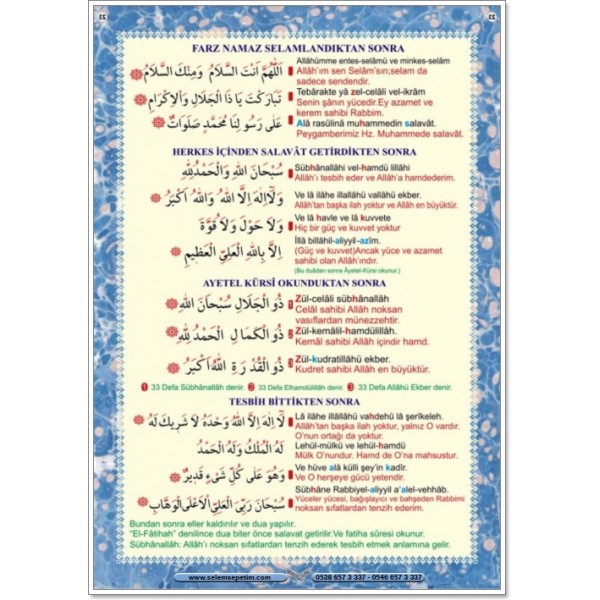 23
23
FARZ NAMAZ SELAMLANDIKTAN SONRA
اَللّٰهُمَّ اَنْتَ السَّلَامُ وَمِنْكَ السَّلَامُ
Allâhümme entes-selâmü ve minkes-selâm
Allâh'ım sen Selâm'sın;selam da
sadece sendendir.
تَبَارَكْتَ يَا ذَا الْجَلَالِ وَالْاِكْرَامِ
Tebârakte yâ zel-celâli vel-ikrâm
Senin şânın yücedir.Ey azamet ve
kerem sahibi Rabbim.
عَلَى رَسُولِنَا مُحَمَّدٍ صَلَوَاتٌ
Alâ rasûlinâ muhammedin salavât.
Peygamberimiz Hz. Muhammede salavât.
HERKES İÇİNDEN SALAVÂT GETİRDİKTEN SONRA
سُبْحَانَ اللهِ وَالْحَمْدُ لِلّٰهِ
Sübhânallâhi vel-hamdü lillâhi
Allâh'ı tesbih eder ve Allâh'a hamdederim.
وَلَا اِلٰهَ اِلَّا اللهُ وَاللهُ اَكْبَرُ
Ve lâ ilâhe illallâhü vallâhü ekber.
Allâh'tan başka ilah yoktur ve Allâh en büyüktür.
وَلَا حَوْلَ وَلَا قُوَّةَ
Ve lâ havle ve lâ kuvvete
Hiç bir güç ve kuvvet yoktur
اِلَّا بِاللهِ الْعَلِيِّ الْعَظِيمِ
İllâ billâhil-aliyyil-azîm.
(Güç ve kuvvet)Ancak yüce ve azamet
sahibi olan Allâh'ındır.
(Bu duâdan sonra Âyetel-Kürsi okunur.)
AYETEL KÜRSÎ OKUNDUKTAN SONRA
ذُو الْجَلَالِ سُبْحَانَ اللهِ
1 Zül-celâli sübhânallâh
Celâl sahibi Allâh noksan
vasıflardan münezzehtir.
ذُو الْكَمَالِ الْحَمْدُ لِلّٰهِ
2 Zül-kemâlil-hamdülillâh.
Kemâl sahibi Allâh içindir hamd.
ذُو الْقُدْرَةِ اللهُ اَكْبَرُ
3 Zül-kudratillâhü ekber.
Kudret sahibi Allâh en büyüktür.
1 33 Defa Sübhânallâh denir. 2 33 Defa Elhamdülillâh denir. 3 33 Defa Allâhü Ekber denir.
TESBİH BİTTİKTEN SONRA
لَا اِلٰهَ اِلَّا اللهُ وَحْدَهُ لَا شَرِيكَ لَهُ
Lâ ilâhe illâllâhü vahdehû lâ şerîkeleh.
Allâh'tan başka ilah yoktur, yalnız O vardır.
O'nun ortağı da yoktur.
لَهُ الْمُلْكُ وَلَهُ الْحَمْدُ
Lehül-mülkü ve lehül-hamdü
Mülk O'nundur. Hamd de O'na mahsustur.
وَهُوَ عَلَى كُلِّ شَيْءٍ قَدِيرٌ
Ve hüve alâ külli şey'in kadîr.
Ve O herşeye gücü yetendir.
سُبْحَانَ رَبِّيَ الْعَلِيِّ الْاَعْلَى الْوَهَّابِ
Sübhâne Rabbiyel-aliyyil a'alel-vehhâb.
Yüceler yücesi, bağışlayıcı ve bahşeden Rabbimi
noksan sıfatlardan tenzih ederim.
Bundan sonra eller kaldırılır ve dua yapılır.
"El-Fâtihah" denilince dua biter önce salavat getirilir.Ve fatiha sûresi okunur.
Sübhânallâh: Allâh'ı noksan sıfatlardan tenzih ederek tesbih etmek anlamına gelir.
www.selemsepetim.com 0538 657 3 337 - 0546 657 3 337